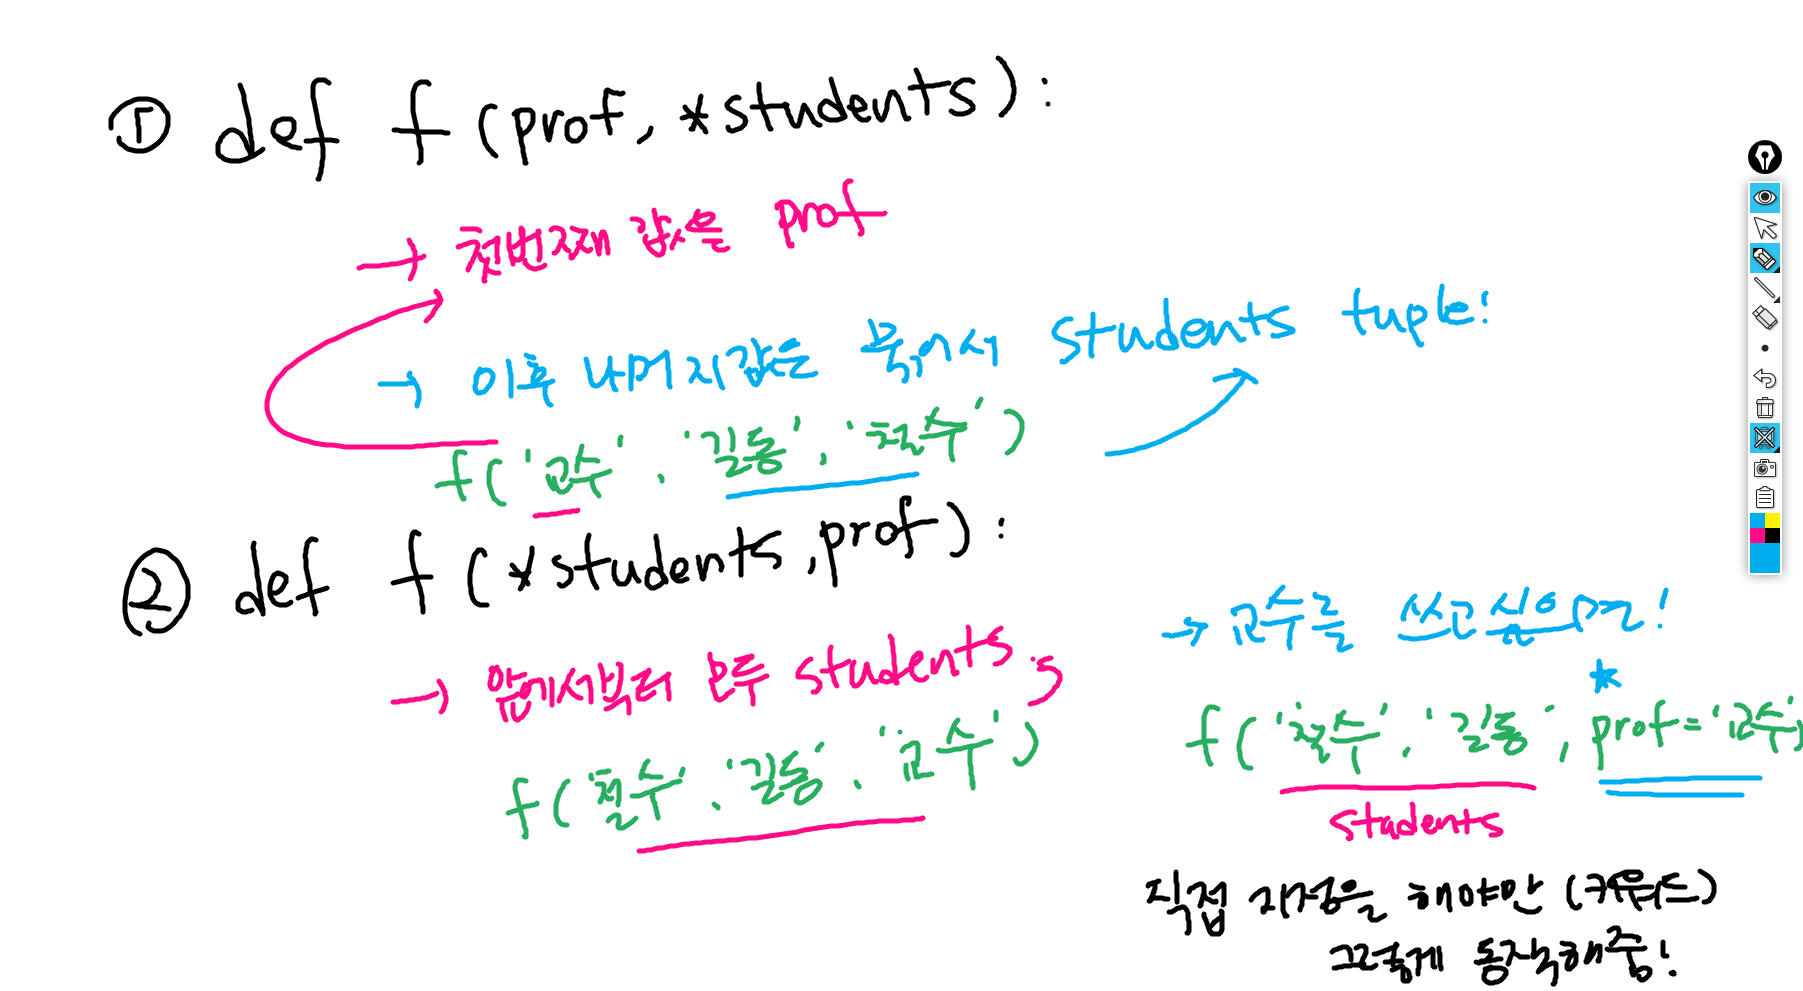 ① def f(prof, *students):
→ 첫번째 값을 prof
→ 이후 나머지값은 묶어서 students tuple!
f('교수', '길동', '철수')
② def f(*students, prof):
→ 앞에서부터 모두 students;
f('철수', '길동', '교수')
→ 교수를 쓰고싶으면!
*
f('철수', '길동', prof='교수')
students
직접 지정을 해야만 (키워드)
그렇게 동작해줌!